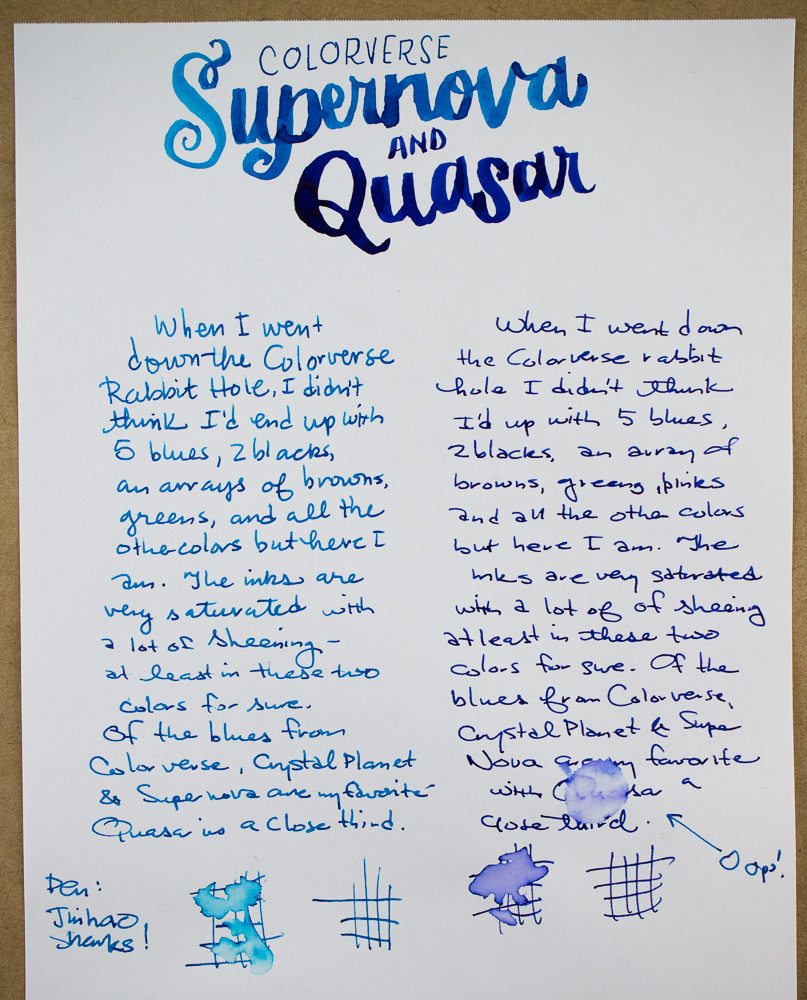 COLORVERSE
Supernova
AND
Quasar
When I went
down the Colorverse
Rabbit Hole, I didn't
think I'd end up with
5 blues, 2 blacks,
an arrays of browns,
greens, and all the
other colors but here I
am. The inks are
very saturated with
a lot of sheening -
at least in these two
colors for sure.
Of the blues from
Colorverse, Crystal Planet
& Supernova are my favorite
Quasar is a close third.
When I went down
the Colorverse rabbit
hole I didn't think
I'd up with 5 blues,
2 blacks, an array of
browns, greens, pinks
and all the other colors
but here I am. The
inks are very saturated
with a lot of of sheeing
at least in these two
colors for sure. Of the
blues from Colorverse,
Crystal Planet & Super
Nova are my favorite
with Quasar a
close third.
Oops!
Pen:
Jinhao
Shanks!